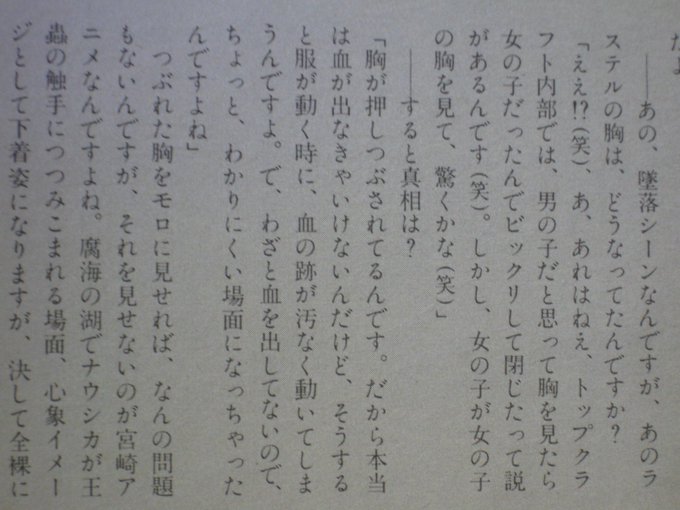 たよ
――あの、墜落シーンなんですが、あのラ
ステルの胸は、どうなってたんですか？
「ええ!?(笑)、あ、あれはねえ、トップクラ
フト内部では、男の子だと思って胸を見たら
女の子だったんでビックリして閉じたって説
があるんです(笑)。しかし、女の子が女の子
の胸を見て、驚くかな(笑)」
――すると真相は？
「胸が押しつぶされてるんです。だから本当
は血が出なきゃいけないんだけど、そうする
と服が動く時に、血の跡が汚なく動いてしま
うんですよ。で、わざと血を出してないので、
ちょっと、わかりにくい場面になっちゃった
んですよね」
つぶれた胸をモロに見せれば、なんの問題
もないんですが、それを見せないのが宮崎ア
ニメなんですよね。腐海の湖でナウシカが王
蟲の触手につつみこまれる場面、心象イメー
ジとして下着姿になりますが、決して全裸に